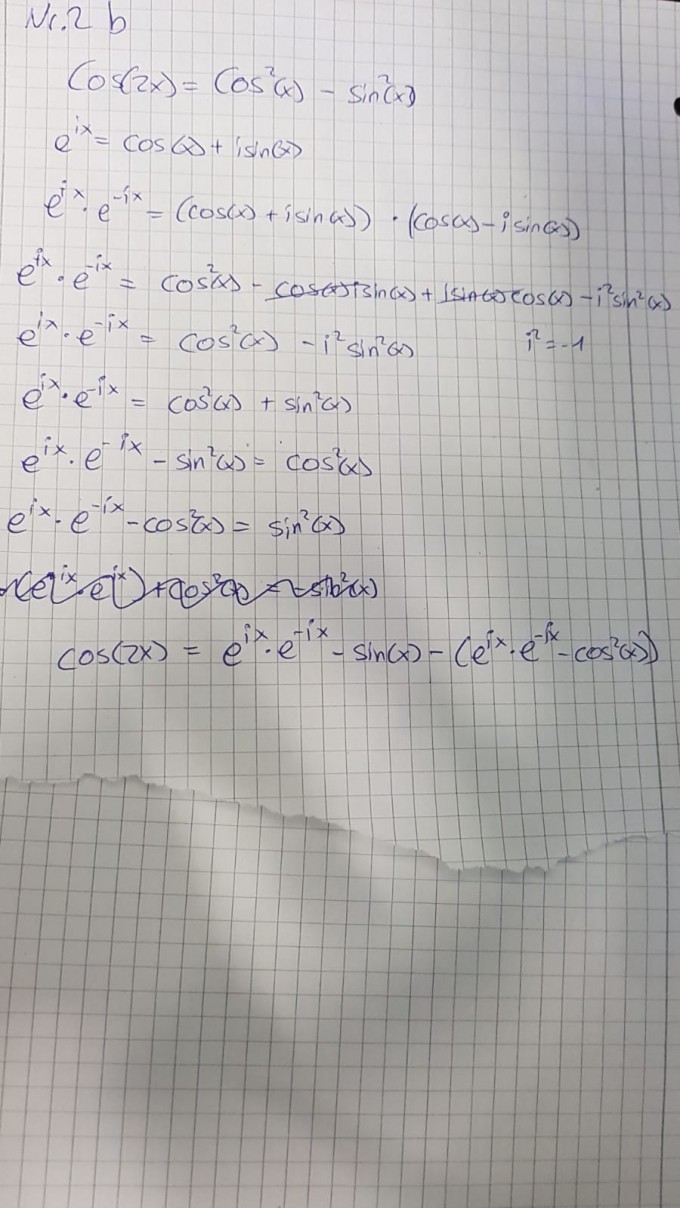 Nr.2 b
Cos(2x) = Cos²(x) - sin²(x)
e^ix = cos(x) + isin(x)
e^ix · e^-ix = (cos(x) + isin(x)) · (cos(x) - isin(x))
e^ix · e^-ix = cos²(x) - cos(x)isin(x) + isin(x)cos(x) - i²sin²(x)
e^ix · e^-ix = cos²(x) - i²sin²(x) i² = -1
e^ix · e^-ix = cos²(x) + sin²(x)
e^ix · e^-ix - sin²(x) = cos²(x)
e^ix · e^-ix - cos²(x) = sin²(x)
cos(2x) = e^ix · e^-ix - sin(x) - (e^ix · e^-ix - cos²(x))